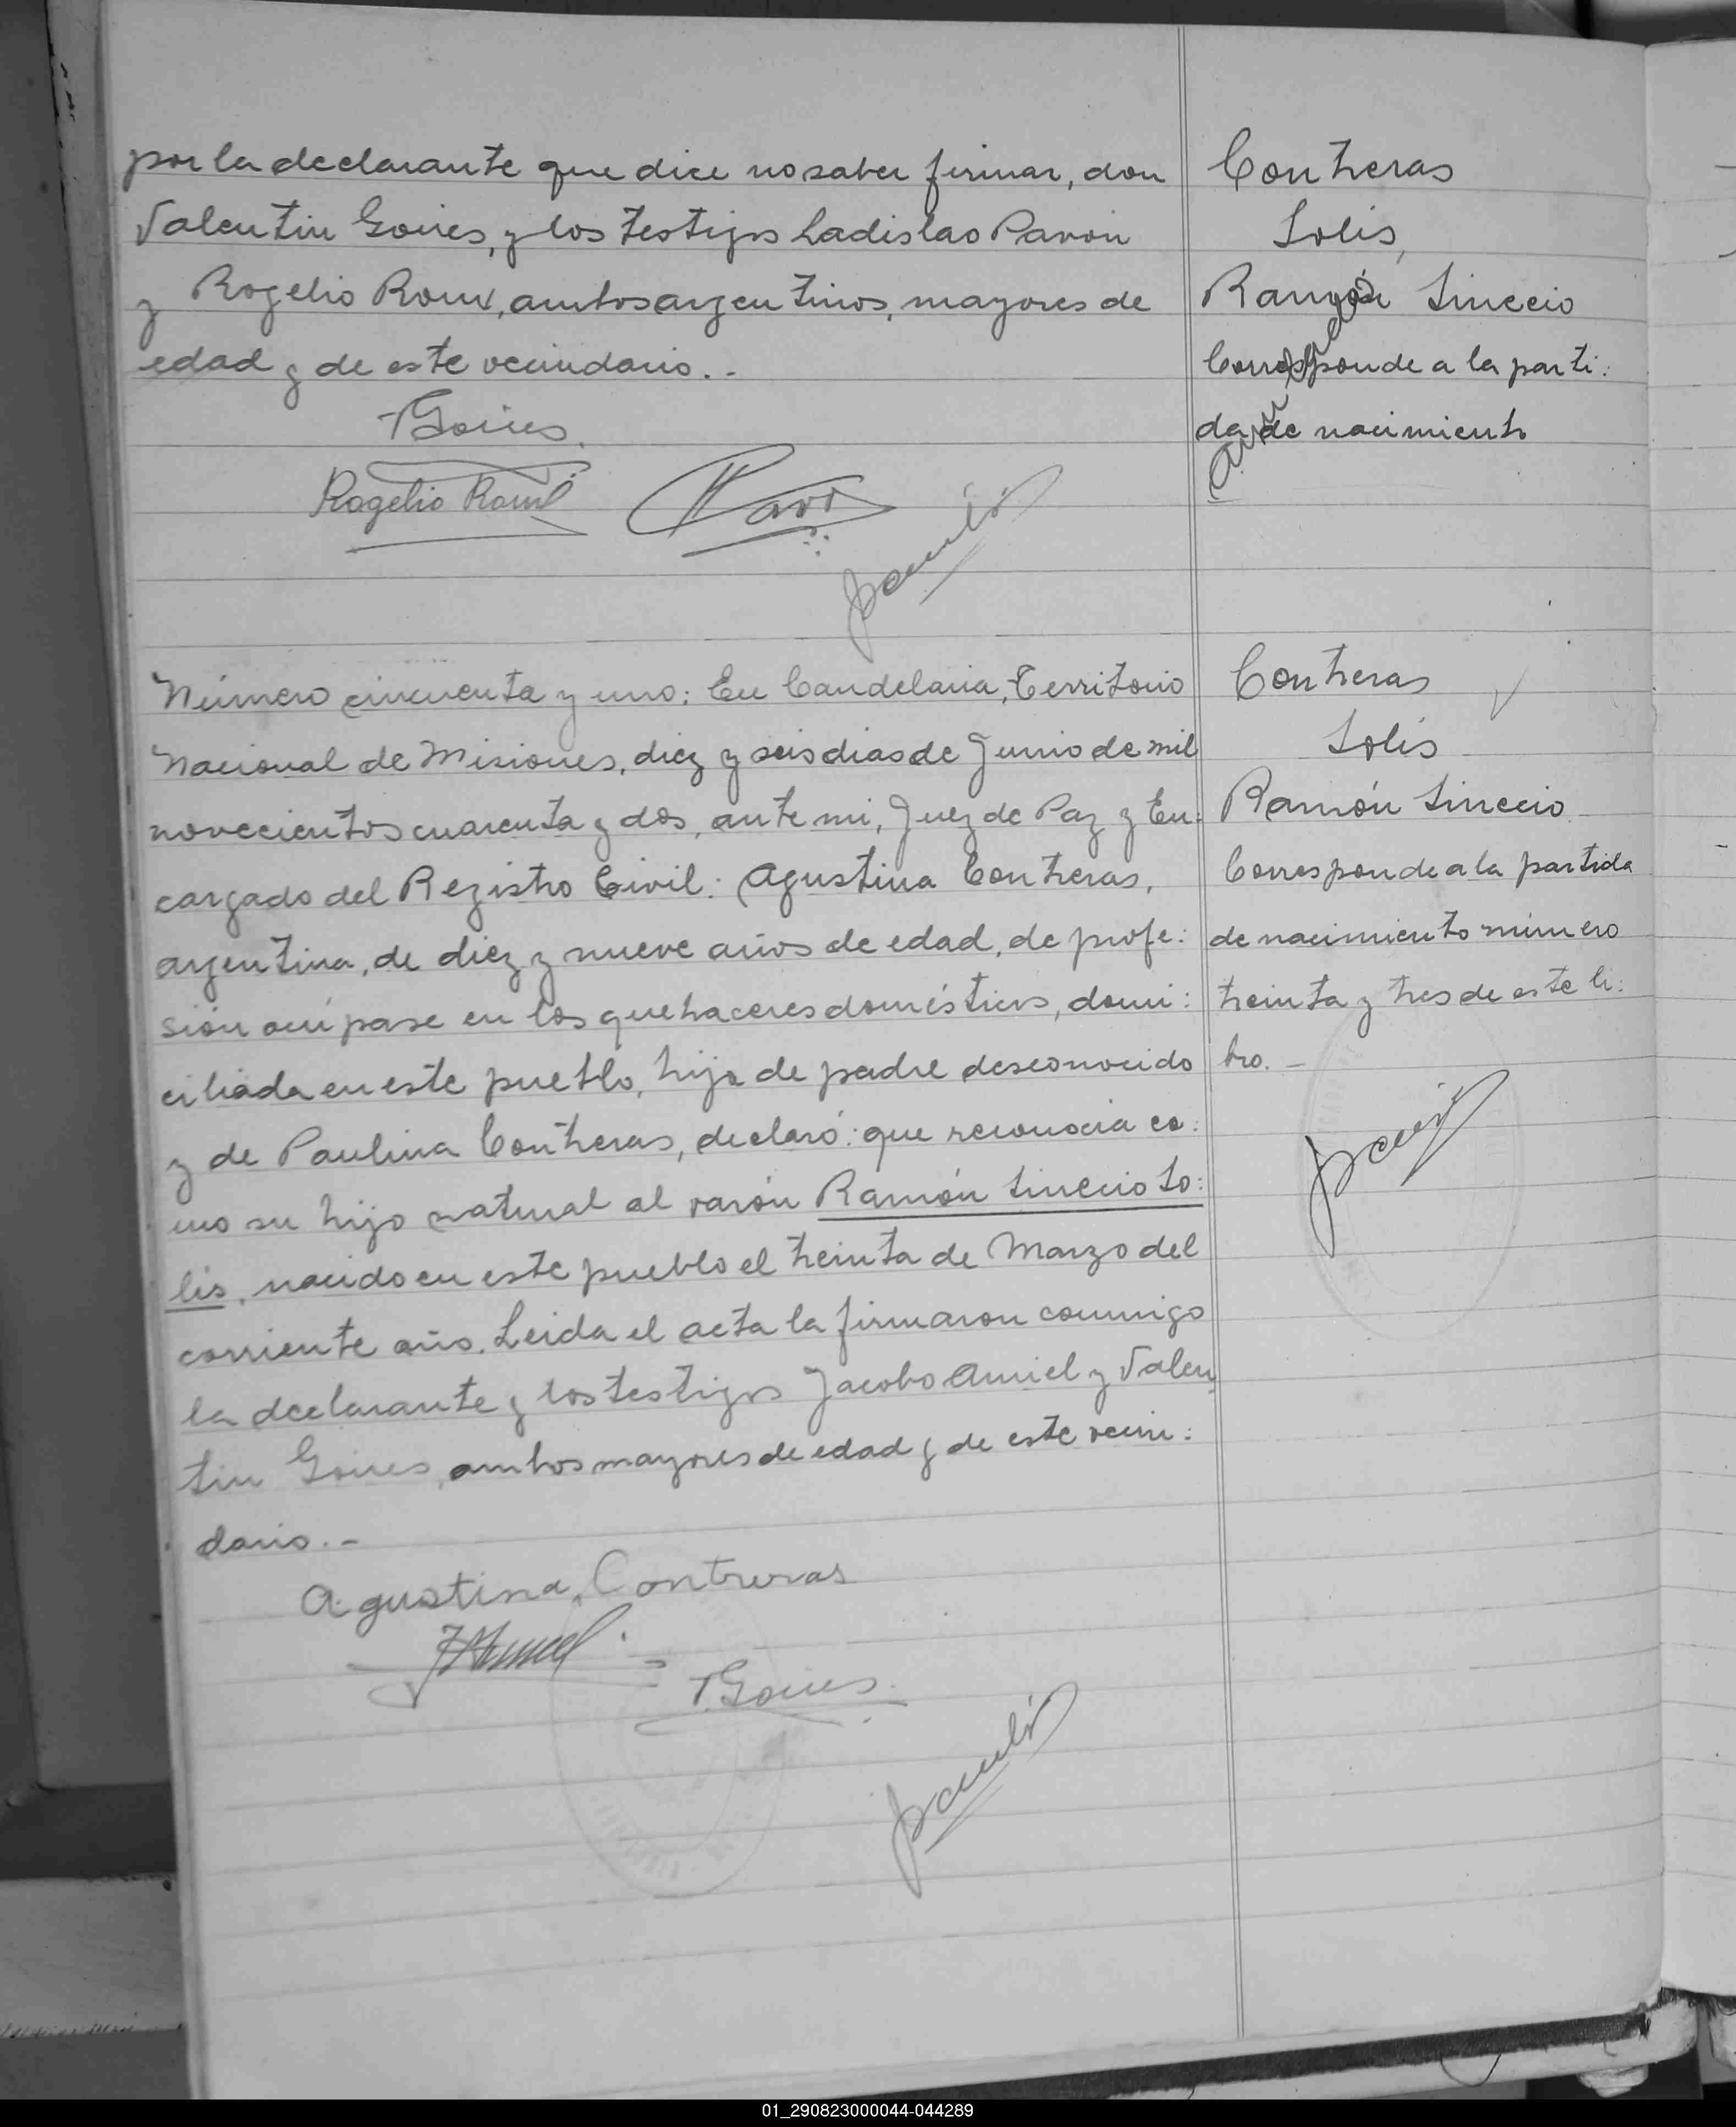 por la declarante que dice no saber firmar, don
Valentin Goires, y los testigos Ladislao Pavon
y Rogelio Roux, ambos argentinos, mayores de
edad y de este vecindario. . -
VGoires.
Rogelio Roux
Contreras
Solis,
Ramón Sinecio
Corresponde a la parti:
da de nacimiento
Anulada
Número cincuenta y uno: En Candelaria, Territorio
Nacional de Misiones, diez y seis dias de Junio de mil
novecientos cuarenta y dos, ante mi, Juez de Paz y En:
cargado del Registro Civil: Agustina Contreras,
argentina, de diez y nueve años de edad, de profe:
sión ocúpase en los quehaceres domésticos, domi:
ciliada en este pueblo, hija de padre desconocido
y de Paulina Contreras, declaró: que reconocia co:
mo su hijo natural al varón Ramón Sinecio So:
lis, nacido en este pueblo el treinta de Marzo del
corriente año. Leida el acta la firmaron conmigo
la declarante y los testigos Jacobo Amiel y Valen
tin Goires, ambos mayores de edad y de este vecin:
dario. . -
Agustina Contreras
JAmiel
VGoires.
Contreras
Solis
Ramón Sinecio. -
Corresponde a la partida
de nacimiento número
treinta y tres de este li:
bro. -
01_290823000044-044289